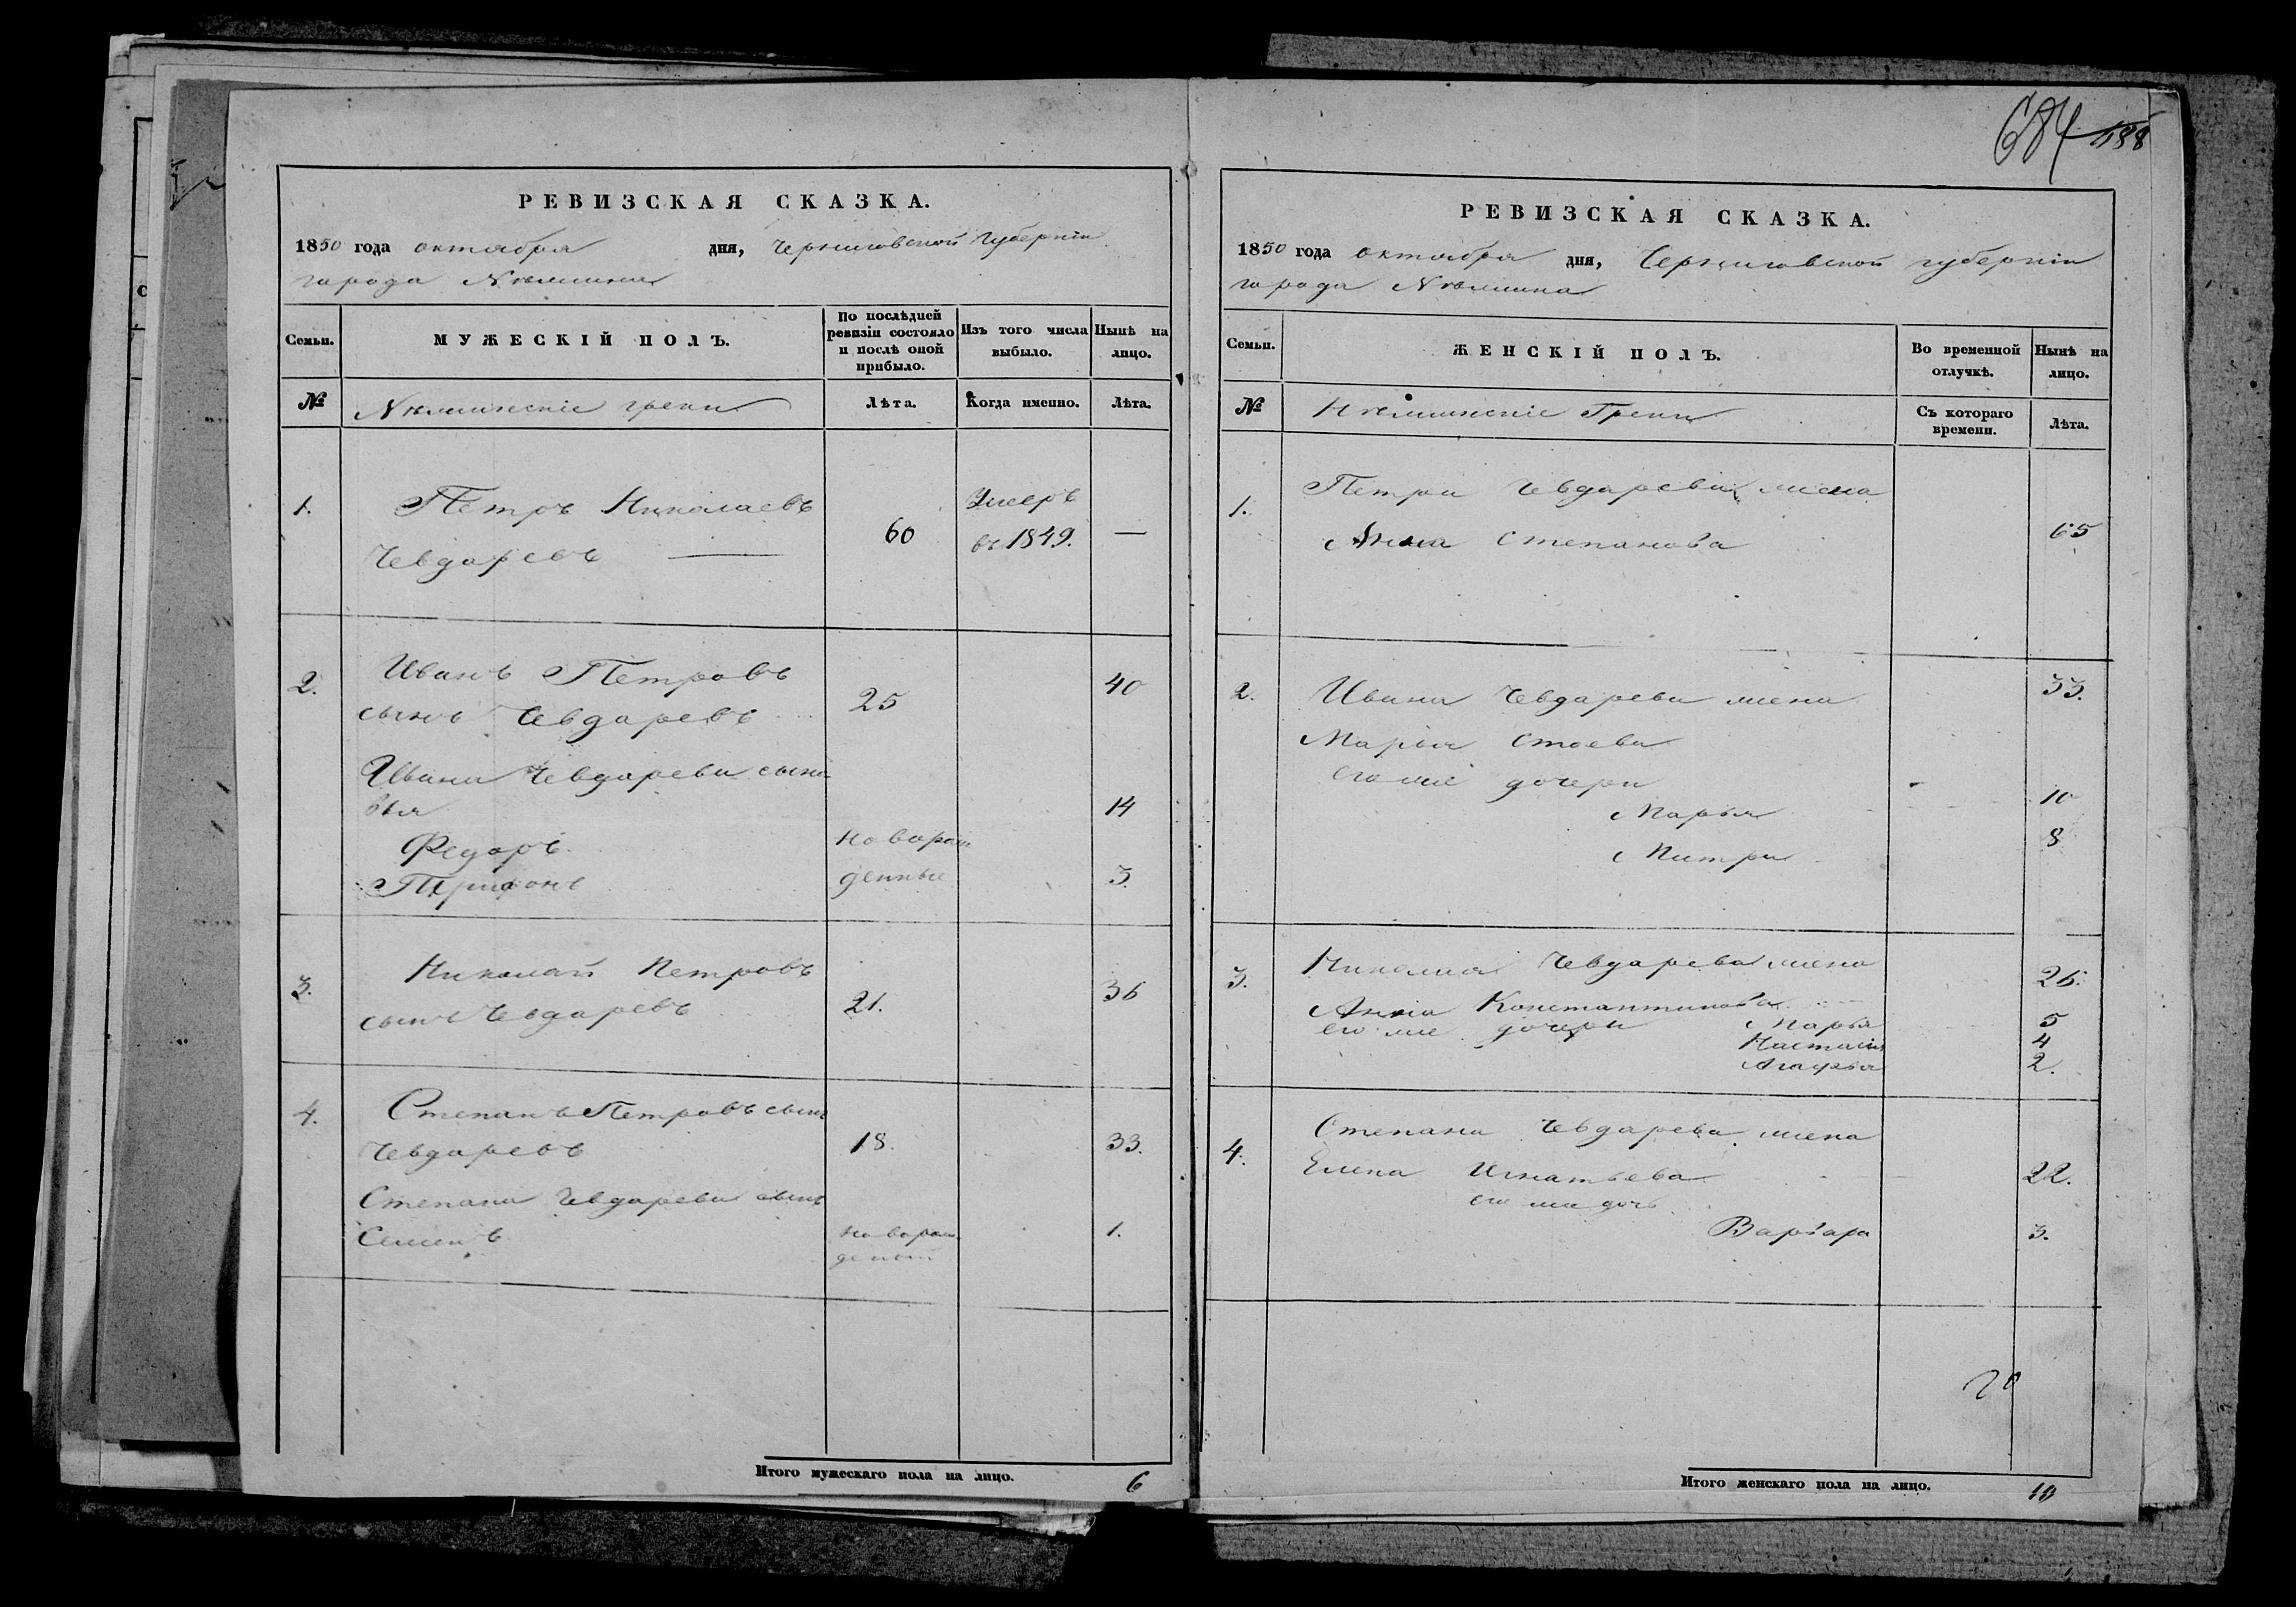 684 688
РЕВИЗСКАЯ СКАЗКА.
1850 года октября дня, Черниговской губерніи
города Нѣжина
Семьи.
МУЖЕСКІЙ ПОЛЪ.
По послѣдней ревизіи состояло и послѣ оной прибыло.
Изъ того числа выбыло.
Нынѣ на лицо.
№
Нѣжинскіе греки
Лѣта.
Когда именно.
Лѣта.
1. Петръ Николаевъ Умеръ
Чевдаревъ — 60 въ 1849. —
2. Иванъ Петровъ 40
сынъ Чевдаревъ 25
Ивана Чевдарева сыно
вья 14
Федоръ новорож
Трифонъ денные 3.
3. Николай Петровъ 36
сынъ Чевдаревъ 21.
4. Степанъ Петровъ сынъ
Чевдаревъ 18. 33.
Степана Чевдарева сынъ
Семенъ новорож 1.
денный
Итого мужескаго пола на лицо. 6
РЕВИЗСКАЯ СКАЗКА.
1850 года октября дня, Черниговской губерніи
города Нѣжина
Семьи.
ЖЕНСКІЙ ПОЛЪ.
Во временной отлучкѣ.
Нынѣ на лицо.
№
Нѣжинскіе Греки
Съ котораго времени.
Лѣта.
1. Петра Чевдарева жена
Анна Степанова 65
2. Ивана Чевдарева жена 33.
Марья Стоева
его же дочери
Марья 10
8
3. Николая Чевдарева жена 26.
Анна Константинова
его же дочери Марья 5
Настасія 4
Агафья 2.
4. Степана Чевдарева жена
Елена Игнатьева 22.
его же дочь
Варвара 3.
Итого женскаго пола на лицо. 10